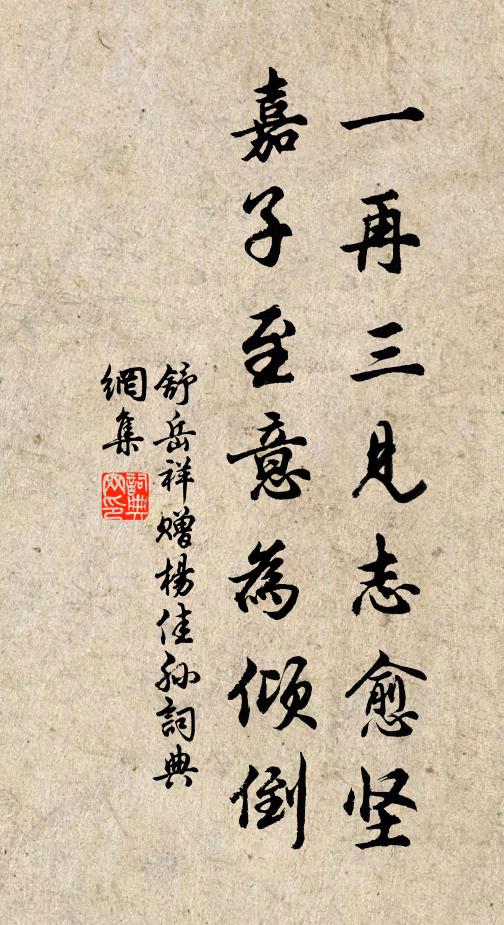 一再三見志愈堅
嘉子至意為傾倒
舒岳祥贈楊佳孫詞典
網集
詞典網印